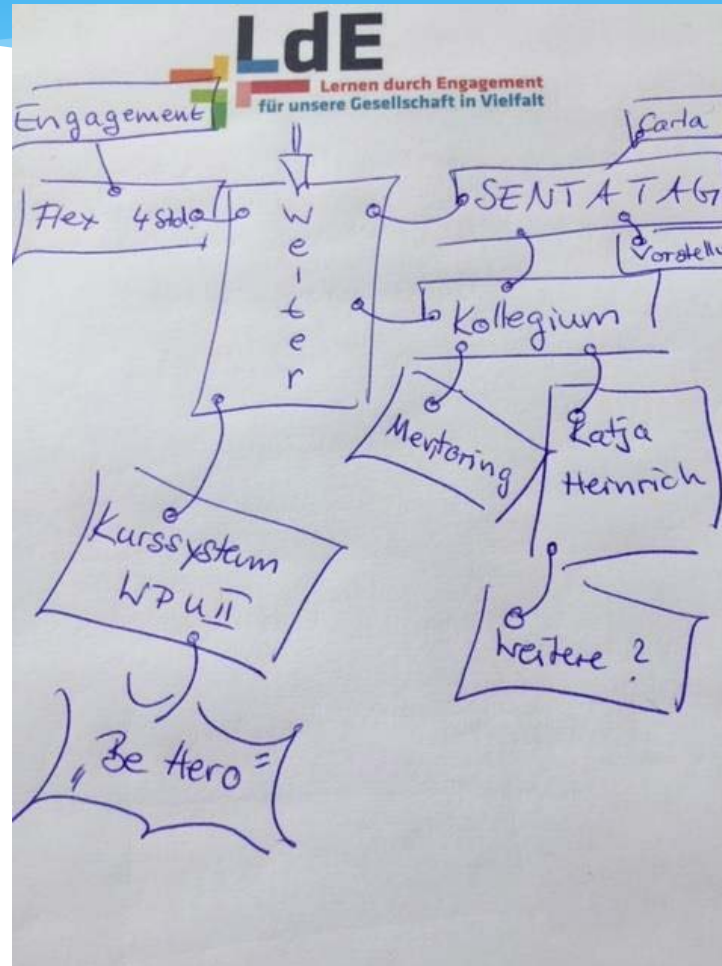 LdE
Lernen durch Engagement
für unsere Gesellschaft in Vielfalt
Engagement
Carla
Flex 4 Std.
Weiter
SENTA TAG
Vorstellu
Kollegium
Mentoring
Katja
Heinrich
Kurssystem
WPU II
Weitere ?
„Be Hero"